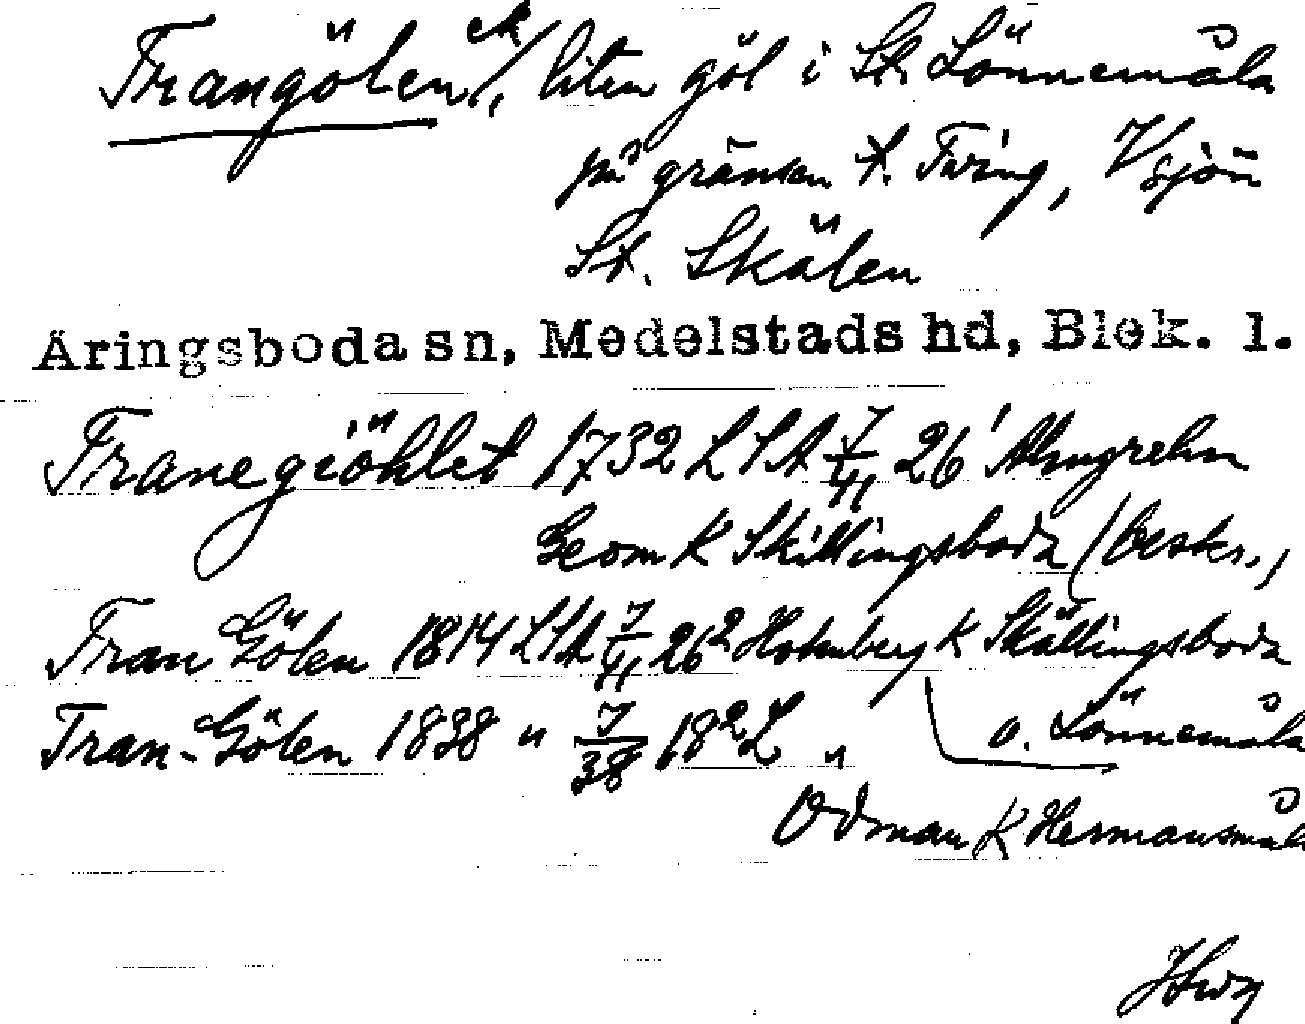 Trangölen ek/, liten göl i St. Lönnemåla
på gränsen t. Tving, V sjön
St. Skälen
Äringsboda sn, Medelstads hd, Blek. l.
Tranegiöhlet 1732 LSA 7/41 26¹ Almgrehn
Geom K Skillingsboda (beskr.,
Tran Gölen 1814 LSA 7/41 26² Holmberg K Skällingsboda
Tran-Gölen 1838 " 7/38 18² L " o. Lönnemåla
Ödman K Hermansmåla